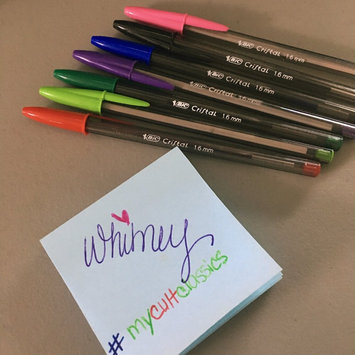 BIC Cristal 1.6mm
BIC Cristal 1.6mm
BIC Cristal 1.6mm
BIC Cristal 1.6mm
BIC Cristal 1.6mm
BIC Cristal 1.6mm
Whitney
#mycultclassics